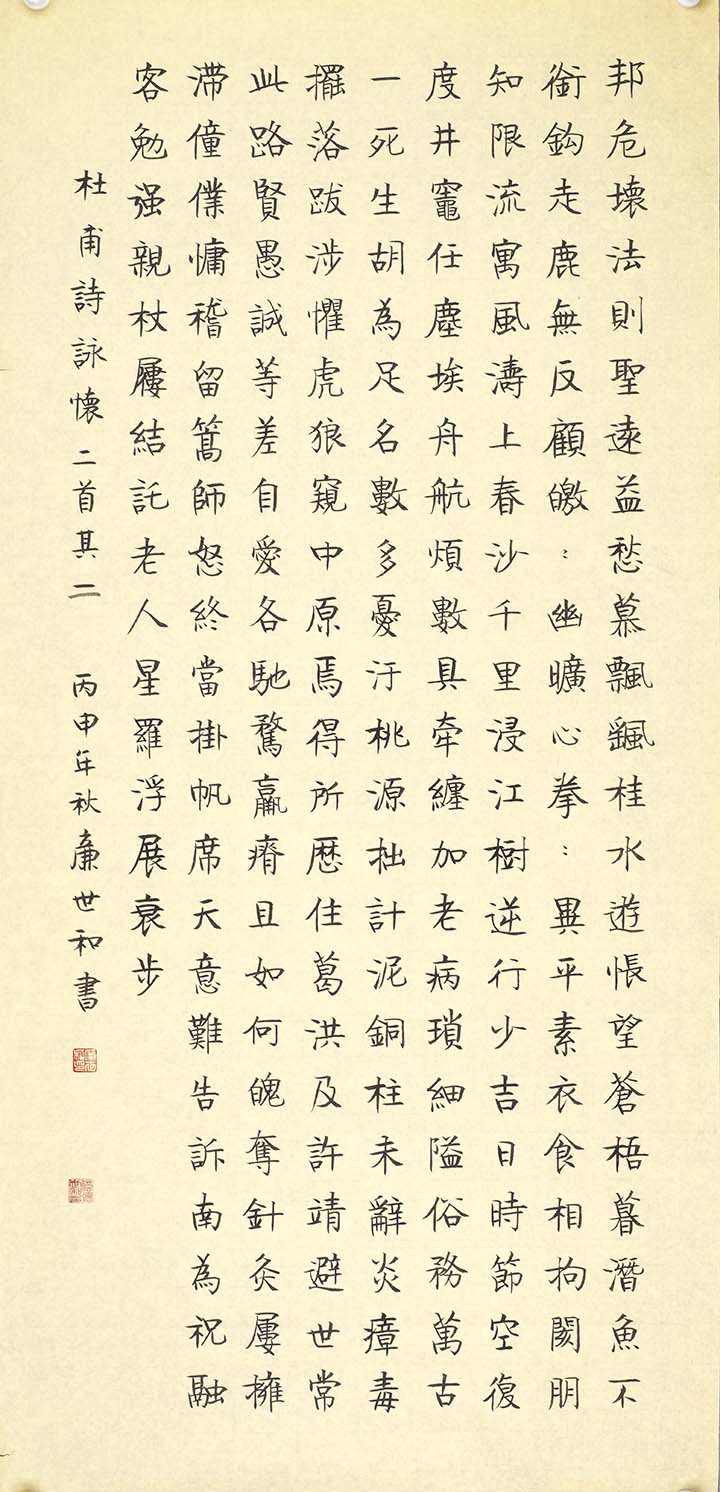 邦危壞法則聖遠益愁慕飄颻桂水遊悵望蒼梧暮潛魚不
銜鈎走鹿無反顧皦〻幽曠心拳〻異平素衣食相拘閡朋
知限流寓風濤上春沙千里浸江樹逆行少吉日時節空復
度井竈任塵埃舟航煩數具牽纏加老病瑣細隘俗務萬古
一死生胡為足名數多憂汙桃源拙計泥銅柱未辭炎瘴毒
擺落跋涉懼虎狼窺中原焉得所歷住葛洪及許靖避世常
此路賢愚誠等差自愛各馳騖羸瘠且如何魄奪針灸屢擁
滯僮僕慵稽留篙師怒終當掛帆席天意難告訴南為祝融
客勉强親杖屨結託老人星羅浮展衰步
杜甫詩詠懷二首其二 丙申年秋廉世和書